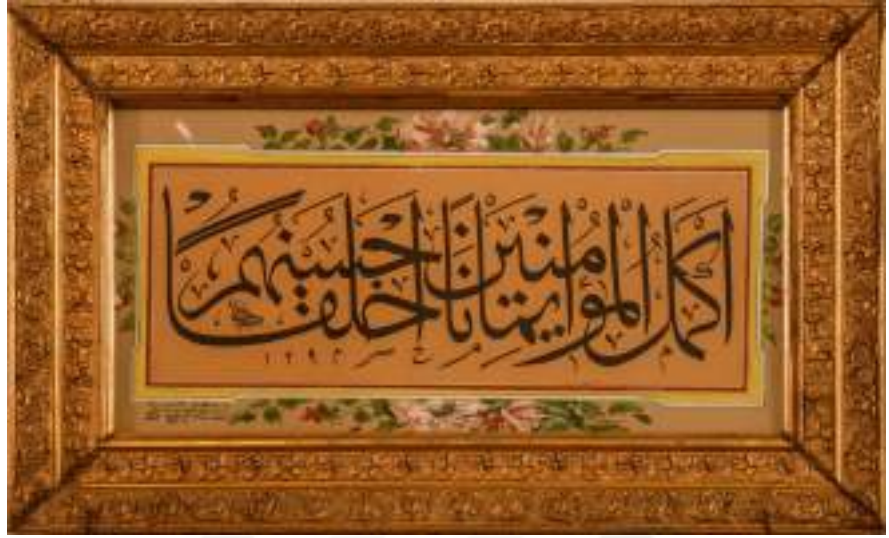 اَكْمَلُ الْمُؤْمِنِينَ اِيمَانًا اَحْسَنُهُمْ خُلُقًا
١٢٩٣